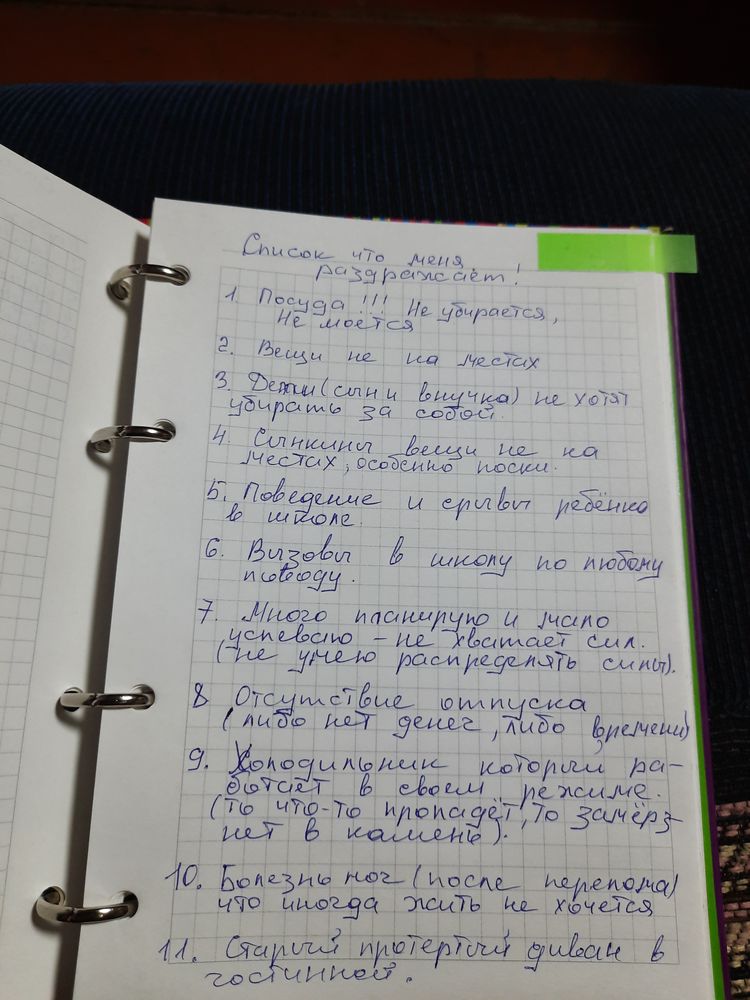 Список что меня
раздражает!
1. Посуда!!! Не убирается,
Не моется
2. Вещи не на местах
3. Дети (сын и внучка) не хотят
убирать за собой.
4. Сынкины вещи не на
местах, особенно носки.
5. Поведение и срывы ребёнка
в школе.
6. Вызовы в школу по любому
поводу.
7. Много планирую и мало
успеваю - не хватает сил.
(не умею распределять силы).
8 Отсутствие отпуска
(либо нет денег, либо времени)
9. Холодильник который ра-
ботает в своём режиме.
(то что-то пропадёт, то замёрз-
нет в камень).
10. Болезнь ног (после перелома)
что иногда жить не хочется
11. Старый протертый диван в
гостинной.